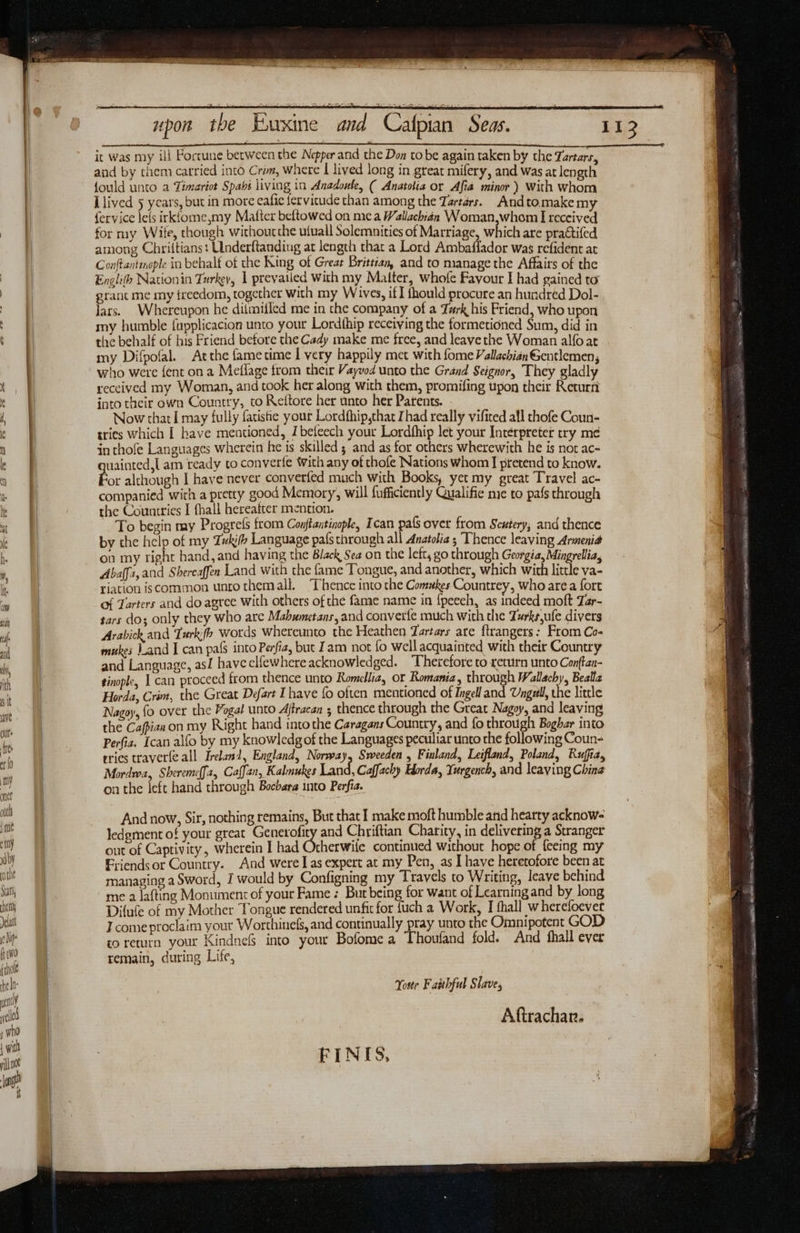 upon the Euxine and Caſpian Seas. 113
it was my ill Fortune between the Nepper and the Don to be again taken by the Tartars,
and by them carried into Crim, where I lived long in great miſery, and was at length
ſould unto a Timariot Spahi living in Anadoule, ( Anatolia or Aſia minor ) with whom
I lived 5 years, but in more eaſie ſervitude than among the Tartars. And to make my
ſervice leſs irkſome, my Maſter beſtowed on me a Wallachian Woman, whom I received
for my Wife, though without the uſuall Solemnities of Marriage, which are practiſed
among Chriſtians: Underſtanding at length that a Lord Ambaſſador was reſident at
Conſtantinople in behalf of the King of Great Brittian, and to manage the Affairs of the
Engliſh Nation in Turkey, I prevailed with my Maſter, whoſe Favour I had gained to
grant me my freedom, together with my Wives, if I ſhould procure an hundred Dol-
lars. Whereupon he diſmiſſed me in the company of a Turk his Friend, who upon
my humble ſupplication unto your Lordſhip receiving the formetioned Sum, did in
the behalf of his Friend before the Cady make me free, and leave the Woman alſo at
my Diſpoſal. At the ſame time I very happily met with ſome Vallachian Gentlemen,
who were ſent on a Meſſage from their Vayvod unto the Grand Seignor, They gladly
received my Woman, and took her along with them, promiſing upon their Return
into their own Country, to Reſtore her unto her Parents.
Now that I may fully ſatisfie your Lordſhip, that I had really viſited all thoſe Coun-
tries which I have mentioned, I beſeech your Lordſhip let your Interpreter try me
in thoſe Languages wherein he is skilled ; and as for others wherewith he is not ac-
quainted, I am ready to converſe with any of thoſe Nations whom I pretend to know.
For although I have never converſed much with Books, yet my great Travel ac-
companied with a pretty good Memory, will ſufficiently Qualifie me to paſs through
the Countries I ſhall hereafter mention.
To begin my Progreſs from Conſtantinople, I can paſs over from Scutery, and thence
by the help of my Tukiſh Language paſs through all Anatolia ; Thence leaving Armenia
on my right hand, and having the Black Sea on the left, go through Georgia, Mingrellia,
Abaſſa, and Shercaſſen Land with the ſame Tongue, and another, which with little va-
riation is common unto them all. Thence into the Comukes Countrey, who are a ſort
of Tarters and do agree with others of the ſame name in ſpeech, as indeed moſt Tar-
tars do; only they who are Mahumetans, and converſe much with the Turks, uſe divers
Arabick and Turkiſh words whereunto the Heathen Tartars are ſtrangers: From Co-
mukes Land I can paſs into Perſia, but I am not ſo well acquainted with their Country
and Language, as I have elſewhere acknowledged. Therefore to return unto Conſtan-
tinople, I can proceed from thence unto Romellia, or Romania, through Wallachy, Bealla
Horda, Crim, the Great Deſart I have ſo often mentioned of Ingell and Ungull, the little
Nagoy, ſo over the Vogal unto Aſtracan ; thence through the Great Nagoy, and leaving
the Caſpian on my Right hand into the Caragans Country, and ſo through Boghar into
Perſia. I can alſo by my knowledg of the Languages peculiar unto the following Coun-
tries traverſe all Ireland, England, Norway, Sweeden , Finland, Leifland, Poland, Ruſſia,
Mordwa, Sheremeſſa, Caſſan, Kalmukes Land, Caſſachy Horda, Yurgench, and leaving China
on the left hand through Bochara into Perſia.
And now, Sir, nothing remains, But that I make moſt humble and hearty acknow-
ledgment of your great Generoſity and Chriſtian Charity, in delivering a Stranger
out of Captivity , wherein I had Otherwiſe continued without hope of ſeeing my
Friends or Country. And were I as expert at my Pen, as I have heretofore been at
managing a Sword, I would by Conſigning my Travels to Writing, leave behind
me a laſting Monument of your Fame : But being for want of Learning and by long
Diſuſe of my Mother Tongue rendered unfit for ſuch a Work, I ſhall whereſoever
I come proclaim your Worthineſs, and continually pray unto the Omnipotent GOD
to return your Kindneſs into your Boſome a Thouſand fold. And ſhall ever
remain, during Life,
Your Faithful Slave,
Aſtrachan.
FINIS,